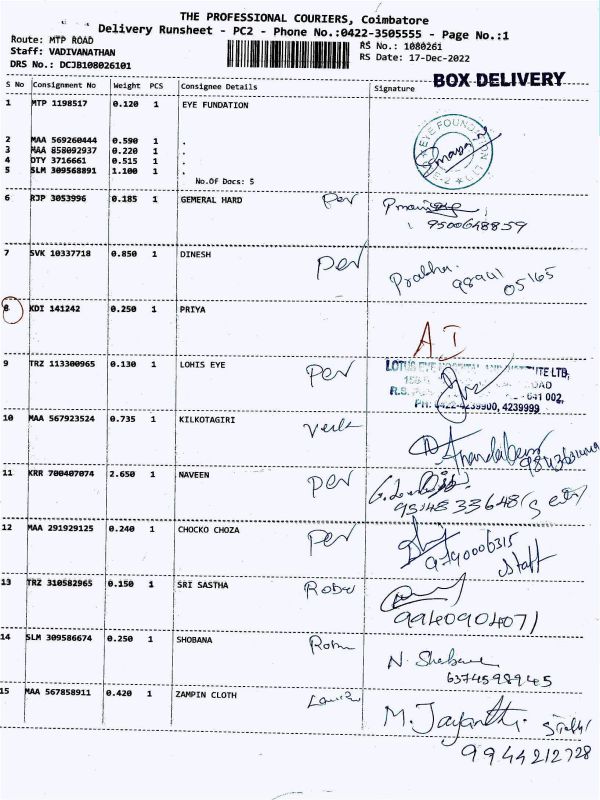 THE PROFESSIONAL COURIERS, Coimbatore
Delivery Runsheet - PC2 - Phone No.:0422-3505555 - Page No.:1
Route: MTP ROAD
Staff: VADIVANATHAN
DRS No.: DCJB108026101
RS No.: 1080261
RS Date: 17-Dec-2022
BOX DELIVERY
S No Consignment No Weight PCS Consignee Details Signature
1 MTP 1198517 0.120 1 EYE FUNDATION
2 MAA 569260444 0.590 1 .
3 MAA 858092937 0.220 1 .
4 DTY 3716661 0.515 1 .
5 SLM 309568891 1.100 1 .
No.Of Docs: 5
EYE FOUNDATION
6 RJP 3053996 0.185 1 GEMERAL HARD Per
9500648859
7 SVK 10337718 0.850 1 DINESH Per Prabha.
98941
05165
8 KDI 141242 0.250 1 PRIYA
AI
9 TRZ 113300965 0.130 1 LOHIS EYE Per
LOTUS EYE HOSPITAL AND INSTITUTE LTD,
ROAD
R.S. - 641 002,
PH: 0422-4239900, 4239999
10 MAA 567923524 0.735 1 KILKOTAGIRI
11 KRR 700407074 2.650 1 NAVEEN Per
9514833648
12 MAA 291929125 0.240 1 CHOCKO CHOZA Per
9790006315
Staff
13 TRZ 310582965 0.150 1 SRI SASTHA
9940904071
14 SLM 309586674 0.250 1 SHOBANA
N. Shobana
6374598945
15 MAA 567858911 0.420 1 ZAMPIN CLOTH
M. Jayanthi
9944212728